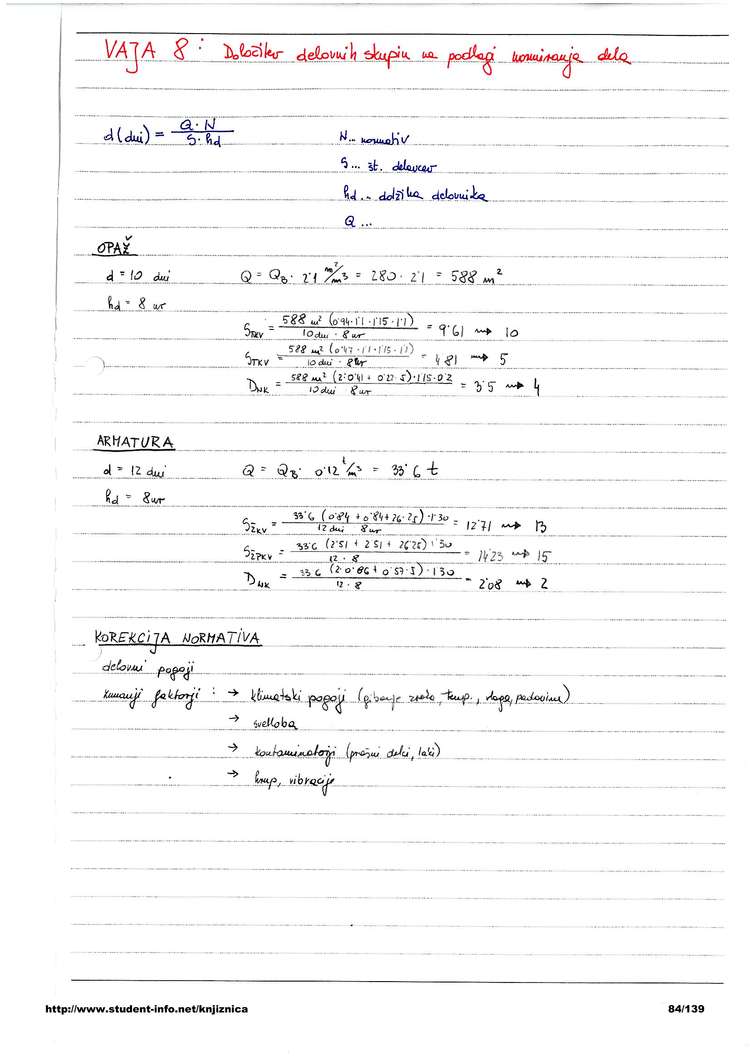 VAJA 8: Določitev delovnih skupin na podlagi normiranja dela
d (dni) = Q·N / S·hd
N... normativ
S... št. delavcev
hd... dolžina delovnika
Q...
OPAŽ
d = 10 dni Q = QB · 2'1 m²/m³ = 280 · 2'1 = 588 m²
hd = 8 ur
STKV = 588 m² (0'94·1'1·1'15·1'1) / 10 dni · 8 ur = 9'61 ⇝ 10
STKV = 588 m² (0'47·1'1·1'15·1'1) / 10 dni · 8ur = 4'81 ⇝ 5
DNK = 588 m² (2·0'41 + 0'27·5)·1'15·0'2 / 10 dni 8 ur = 3'5 ⇝ 4
ARMATURA
d = 12 dni Q = QB · 0'12 t/m³ = 33'6 t
hd = 8ur
SŽKV = 33'6 (0'84 + 0'84+26'25)·1'30 / 12 dni 8ur = 12'71 ⇝ 13
SŽPKV = 33'6 (2'51 + 2'51 + 26'25) 1'30 / 12·8 = 14'23 ⇝ 15
DNK = 33'6 (2·0'86 + 0'57·5)·1'30 / 12·8 = 2'08 ⇝ 2
KOREKCIJA NORMATIVA
delovni pogoji
zunanji faktorji : → klimatski pogoji (gibanje zraka, temp., vlaga, padavine)
→ svetloba
→ kontaminatorji (prašni delci, laki)
→ hrup, vibracije
http://www.student-info.net/knjiznica 84/139